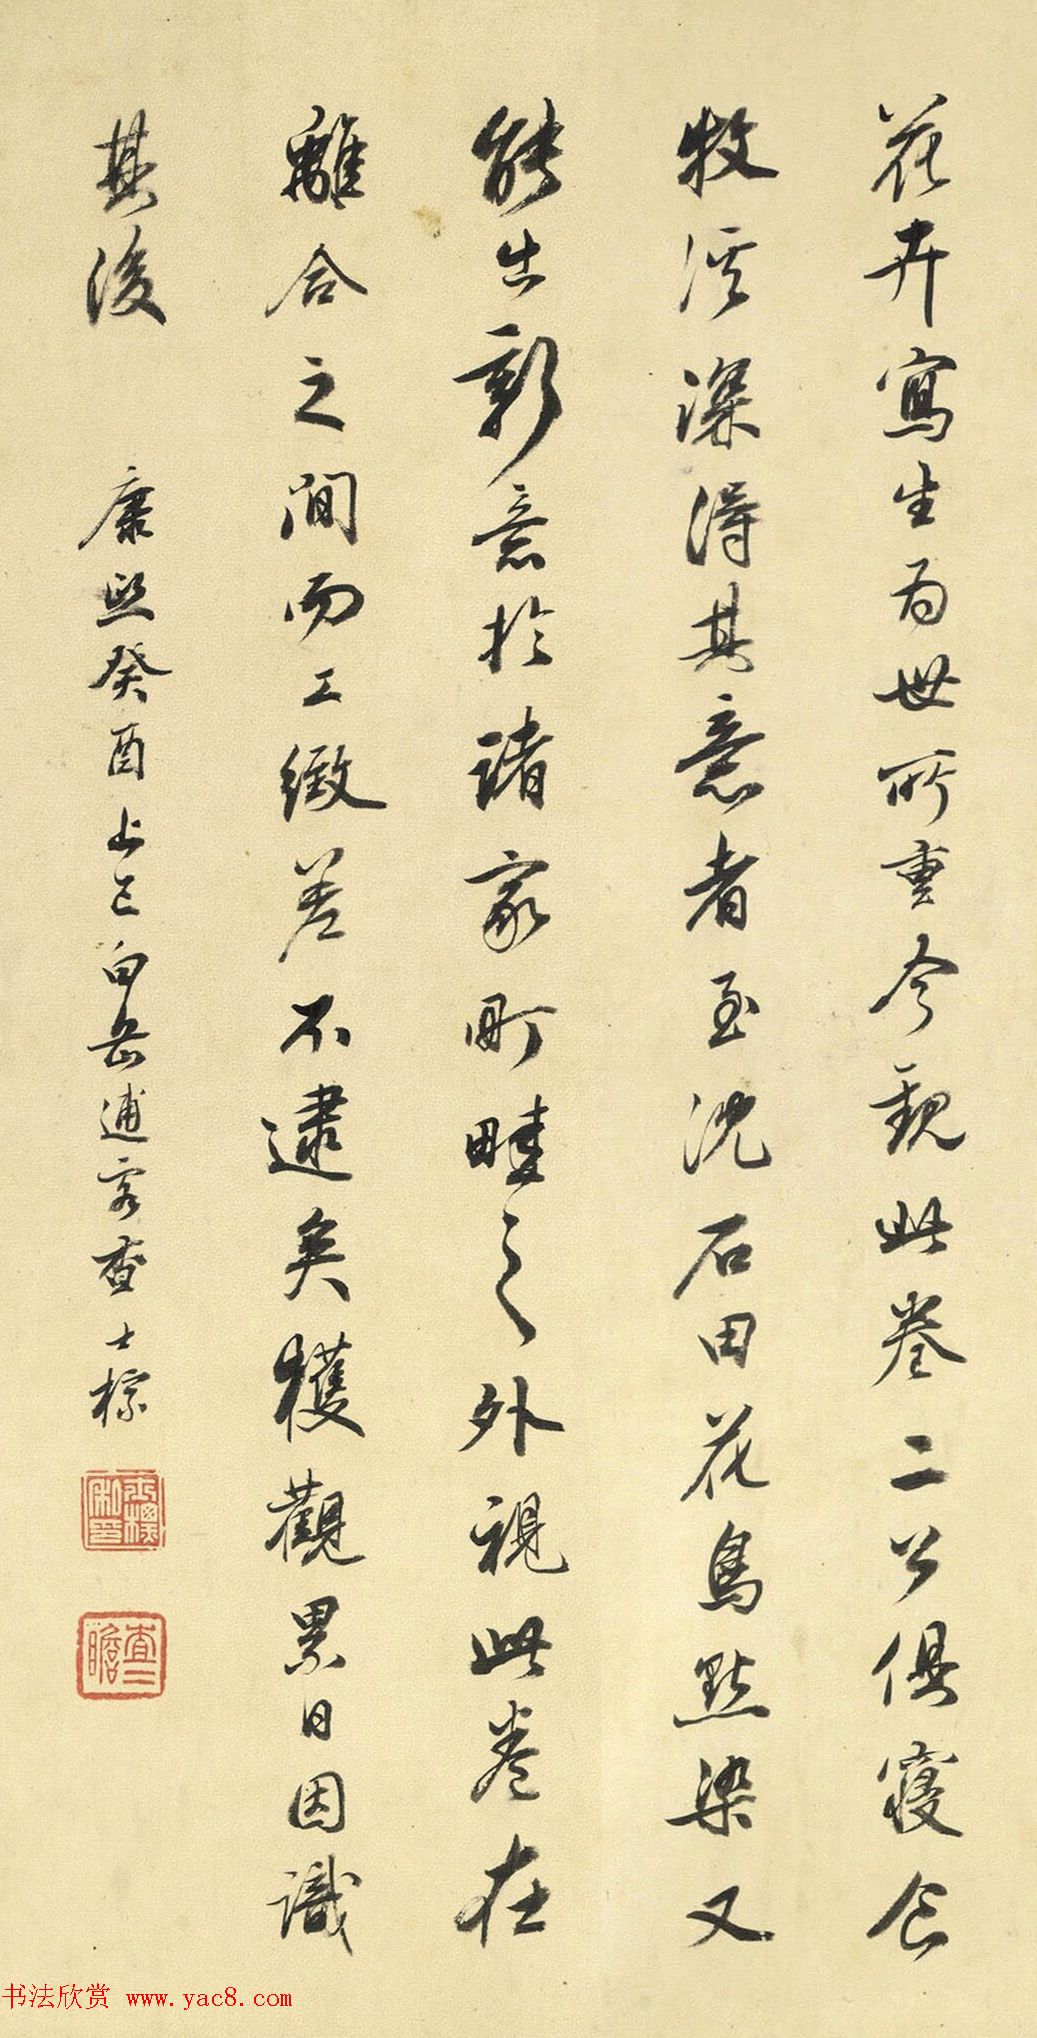 花卉寫生為世所重今觀此卷二公俱寢食
牧溪深得其意者至沈石田花鳥點染又
能出新意於諸家町畦之外視此卷在
離合之間而工緻差不逮矣獲觀累日因識
其後
康熙癸酉上巳白岳逋客查士標
士標私印
查二瞻
书法欣赏 www.yac8.com